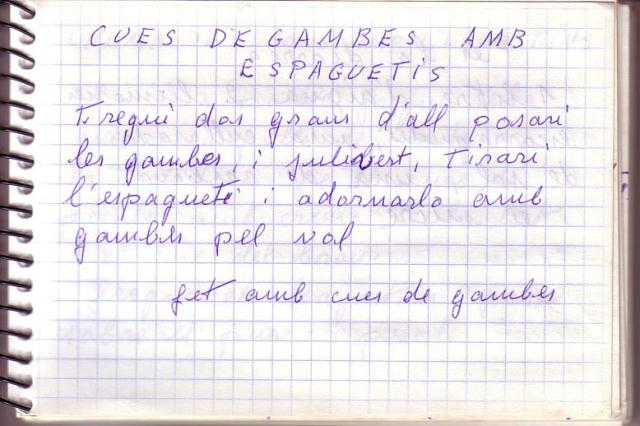 CUES DE GAMBES AMB
ESPAGUETIS
Fregui dos grans d'all posari
les gambes, i julibert, Tirari
l'espagueti i adornarlo amb
gambes pel vol
fet amb cues de gambes